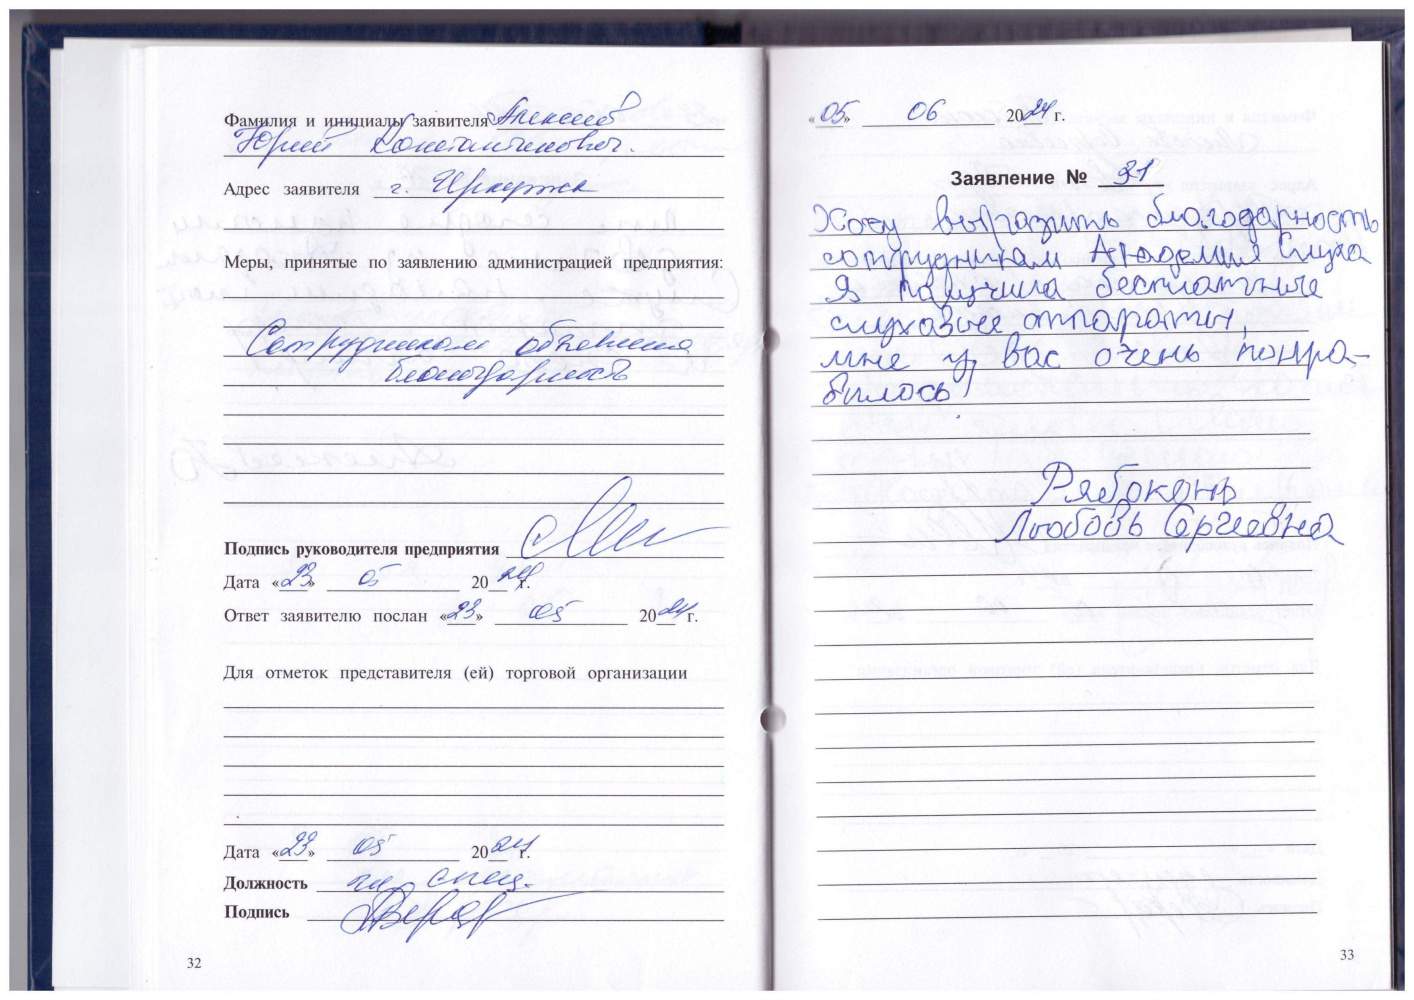 Фамилия и инициалы заявителя Алексеев
Юрий Константинович.
Адрес заявителя г. Иркутск
Меры, принятые по заявлению администрацией предприятия:
Сотрудникам объявлена
благодарность
Подпись руководителя предприятия
Дата «23» 05 2024 г.
Ответ заявителю послан «23» 05 2024 г.
Для отметок представителя (ей) торговой организации
Дата «23» 05 2024 г.
Должность гл. спец.
Подпись
32
«05» 06 2024 г.
Заявление № 31
Хочу выразить благодарность
сотрудникам Академия Слуха
Я получила бесплатные
слуховые аппараты,
мне у вас очень понра-
вилось!
Рябоконь
Любовь Сергеевна
33